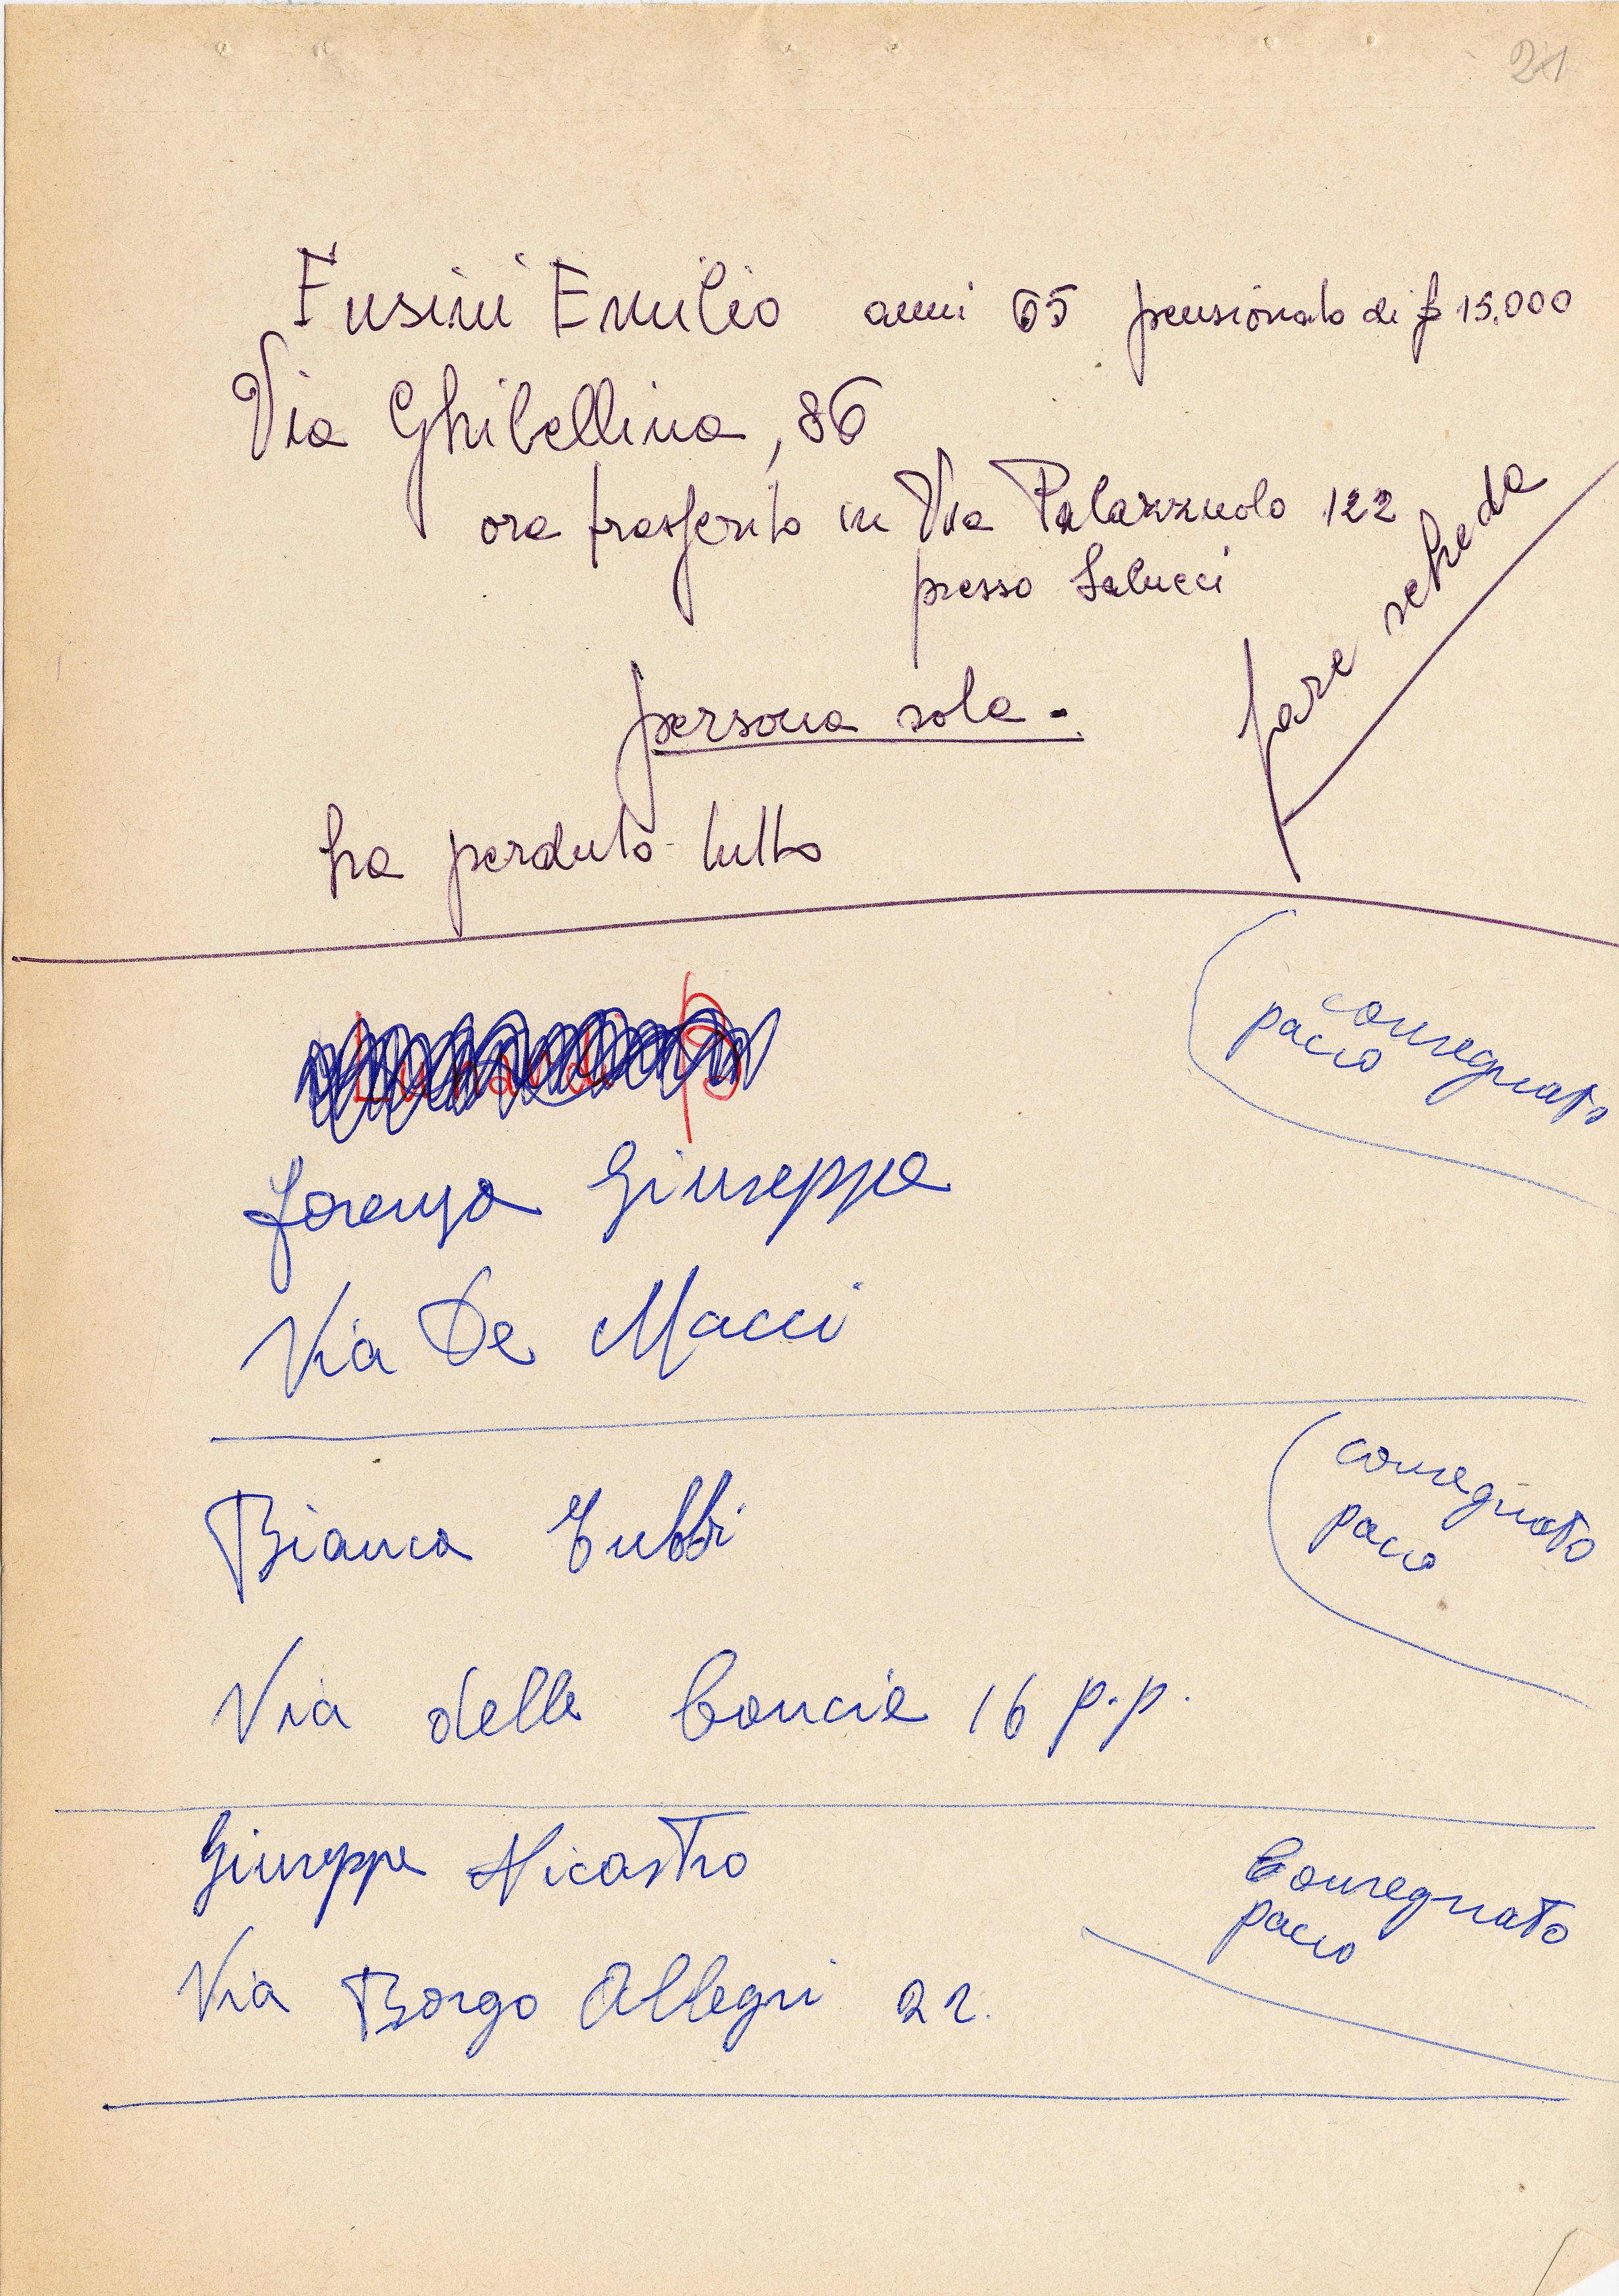 21
Fusini Emilio anni 65 pensionato di £ 15.000
Via Ghibellina, 86
ora trasferito in Via Palazzuolo 122
presso Salucci
fare scheda
persona sola.
ha perduto tutto
consegnato
pacco
Lorenza Giuseppe
Via De Macci
consegnato
pacco
Bianca Tubbi
Via delle Concie 16 p.p.
Giuseppe Nicastro
Consegnato
pacco
Via Borgo Allegri 2 r.